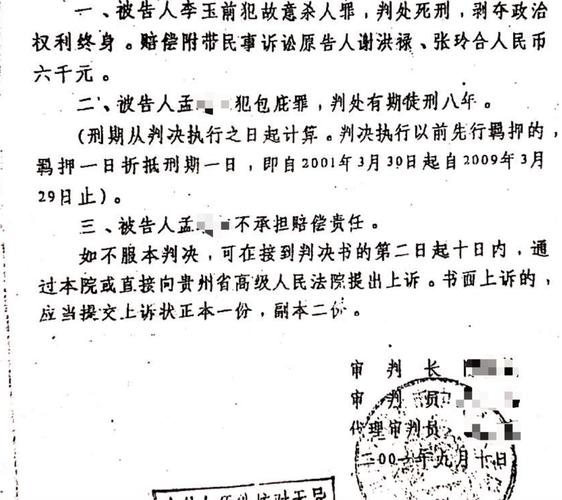 一、被告人李玉前犯故意杀人罪，判处死刑，剥夺政治
权利终身。赔偿附带民事诉讼原告人谢洪禄、张玲合人民币
六千元。
二、被告人孟 犯包庇罪，判处有期徒刑八年。
(刑期从判决执行之日起计算。判决执行以前先行羁押的，
羁押一日折抵刑期一日，即自2001年3月30日起自2009年3月
29日止)。
三、被告人孟 不承担赔偿责任。
如不服本判决，可在接到判决书的第二日起十日内，通
过本院或直接向贵州省高级人民法院提出上诉。书面上诉的，
应当提交上诉状正本一份，副本二份。
审 判 长
审 判 员
代理审判员
二00 年九月十日